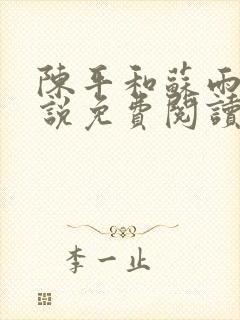 陳平和蘇雨
説免費閱讀
李一止